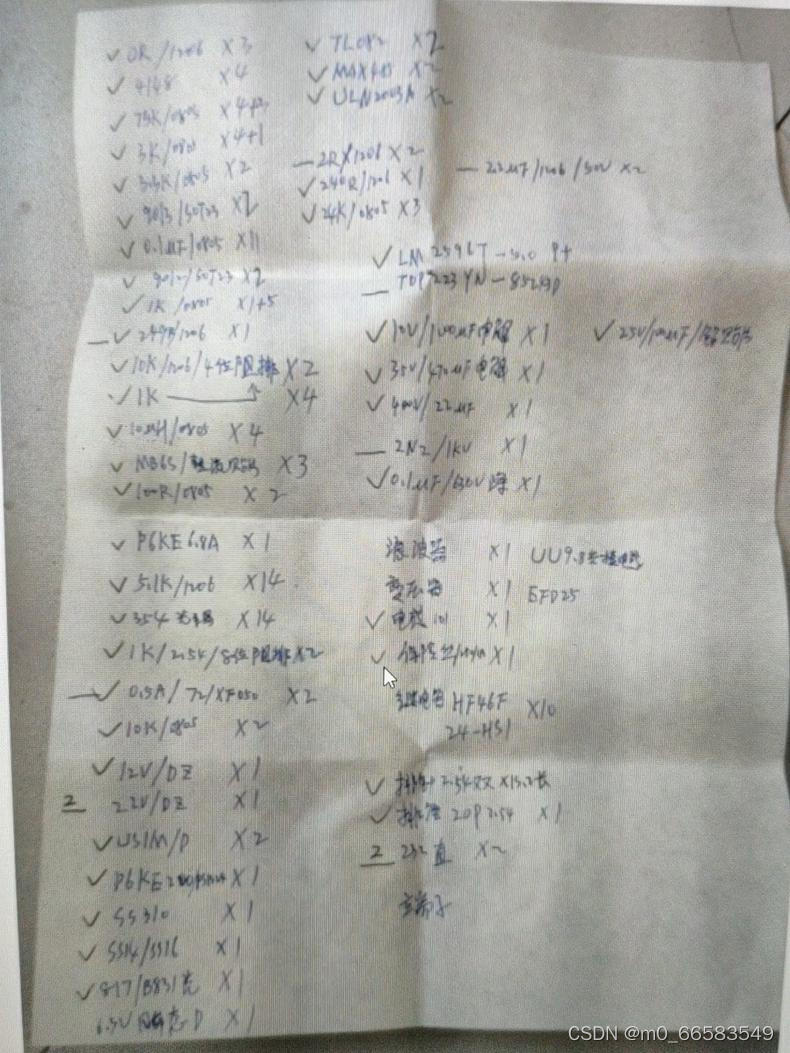 ✓ 0R/1206 X3
✓ 4148 X4
✓ 75K/0805 X4+2
✓ 3K/0805 X4+1
✓ 3.3K/0805 X2
✓ 9013/SOT23 X2
✓ 0.1uF/0805 X11
✓ 9012/SOT23 X2
✓ 1K/0805 X1+5
— ✓ 249R/1206 X1
✓ 10K/1206/4位阻排 X2
✓ 1K X4
✓ 10uH/0805 X4
✓ MB6S/整流 X3
✓ 100R/0805 X2
✓ P6KE6.8A X1
✓ 5.1K/1206 X14
✓ 354 X14
✓ 1K/2.54/8位阻排 X2
— ✓ 0.5A/72/XF050 X2
✓ 10K/0805 X2
✓ 12V/DZ X1
2 22V/DZ X1
✓ US1M/D X2
✓ P6KE200 X1
✓ SS310 X1
✓ SS14/SS16 X1
✓ 817/B831光 X1
6.5V D X1
✓ TL082 X2
✓ MAX485 X2
✓ ULN2003A X2
— 2R/1206 X2
✓ 240R/1206 X1
✓ 24K/0805 X3
— 22uF/1206/50V X2
✓ LM2596T-5.0
— TOP223YN
✓ 10V/100uF电解 X1
✓ 25V/100uF
✓ 35V/470uF电解 X1
✓ 400V/22uF X1
— 2N2/1KV X1
✓ 0.1uF/630V X1
滤波器 X1 UU9.8
变压器 X1 EFD25
✓ 电感101 X1
✓ 保险丝 X1
继电器 HF46F X10
24-HS1
✓ 排针 2.54双
✓ 排 20P 2.54 X1
2 232直 X2
端子
CSDN @m0_66583549